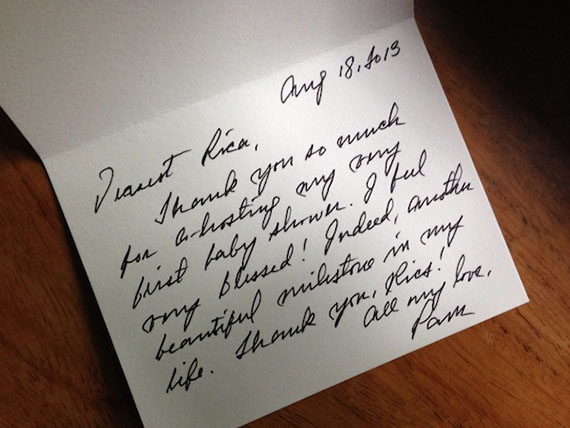 Aug 18, 2013
Dearest Rica,
Thank you so much
for co-hosting my very
first baby shower. I feel
very blessed! Indeed, another
beautiful milestone in my
life. Thank you, Rica!
All my love,
Pam